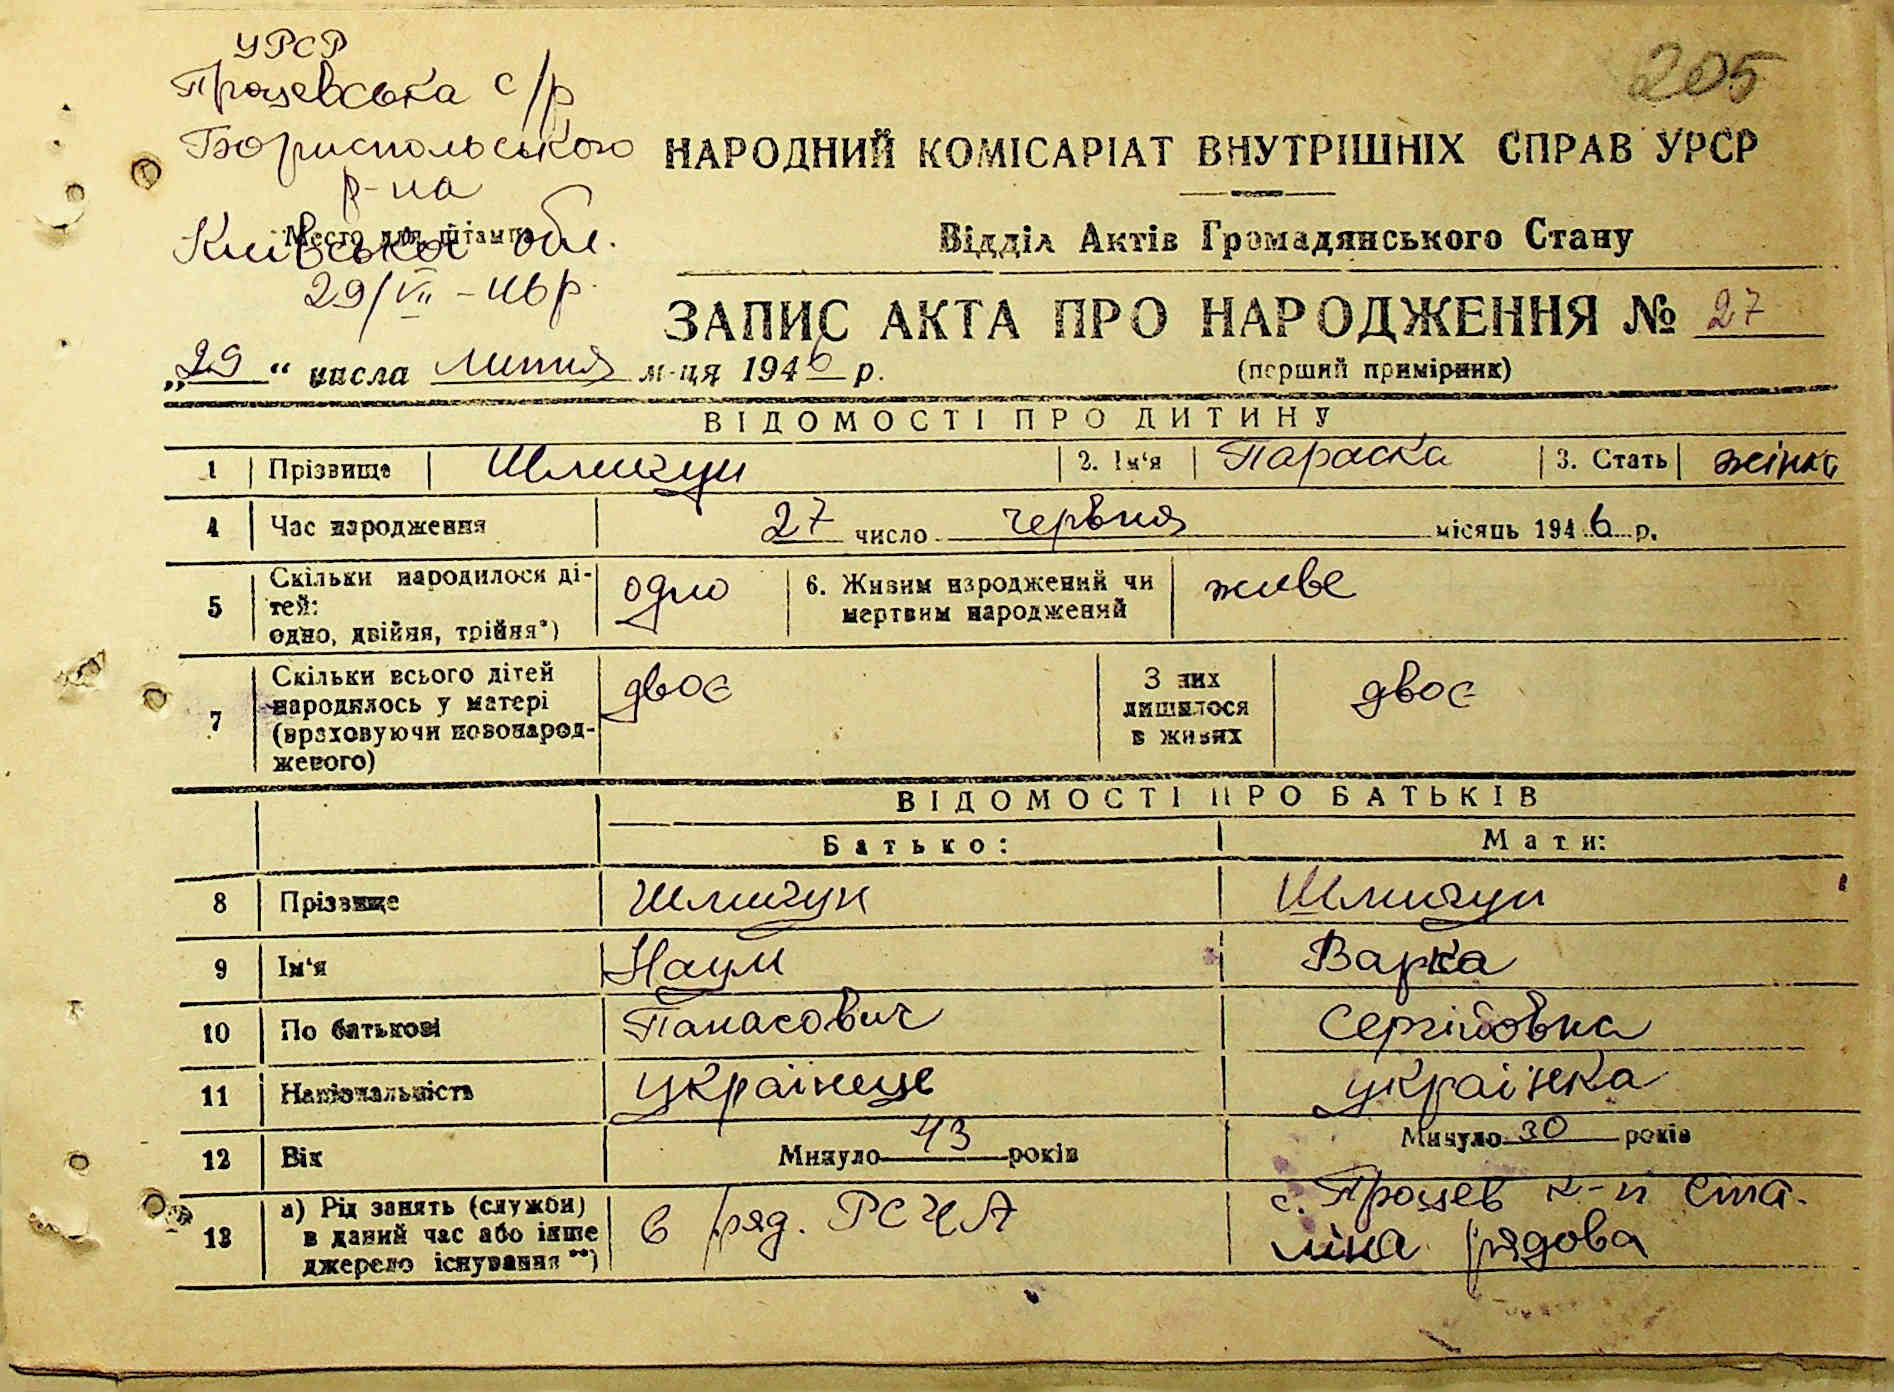 205
УРСР
Процевська с/р
Бориспольського
р-на
Київської обл.
Место для штампа
29/VII – 46 р.
НАРОДНИЙ КОМІСАРІАТ ВНУТРІШНІХ СПРАВ УРСР
Відділ Актів Громадянського Стану
ЗАПИС АКТА ПРО НАРОДЖЕННЯ № 27
„29“ числа липня м-ця 1946 р.
(перший примірник)
ВІДОМОСТІ ПРО ДИТИНУ
1 Прізвище Шличун 2. Ім‘я Параска 3. Стать жінка
4 Час народження 27 число червня місяць 1946 р.
5 Скільки народилося дітей: одно, двійня, трійня*) одно 6. Живим народжений чи мертвим народжений живе
7 Скільки всього дітей народилось у матері (враховуючи новонародженого) двоє З них лишилося в живих двоє
ВІДОМОСТІ ПРО БАТЬКІВ
Батько: Мати:
8 Прізвище Шличун Шличун
9 Ім‘я Наум Варка
10 По батькові Панасович Сергійовна
11 Національність українець українка
12 Вік Минуло 43 років Минуло 30 років
13 а) Рід занять (служби) в даний час або інше джерело існування **) в ряд. РСЧА с. Процев к-п Сталіна рядова